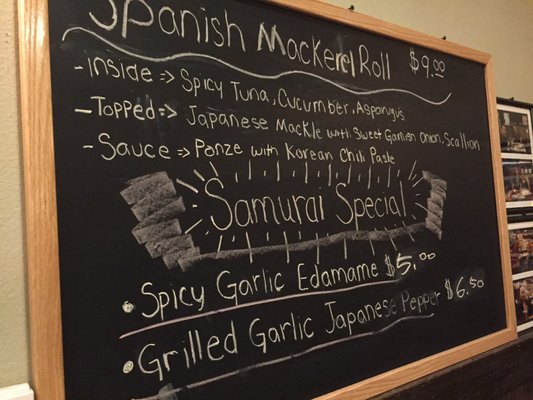 Spanish Mackerel Roll $9.00
-Inside => Spicy Tuna, Cucumber, Asparagus
-Topped => Japanese Mackle with Sweet Garnish Onion, Scallion
-Sauce => Ponze with Korean Chili Paste
Samurai Special
• Spicy Garlic Edamame $5.00
• Grilled Garlic Japanese Pepper $6.50